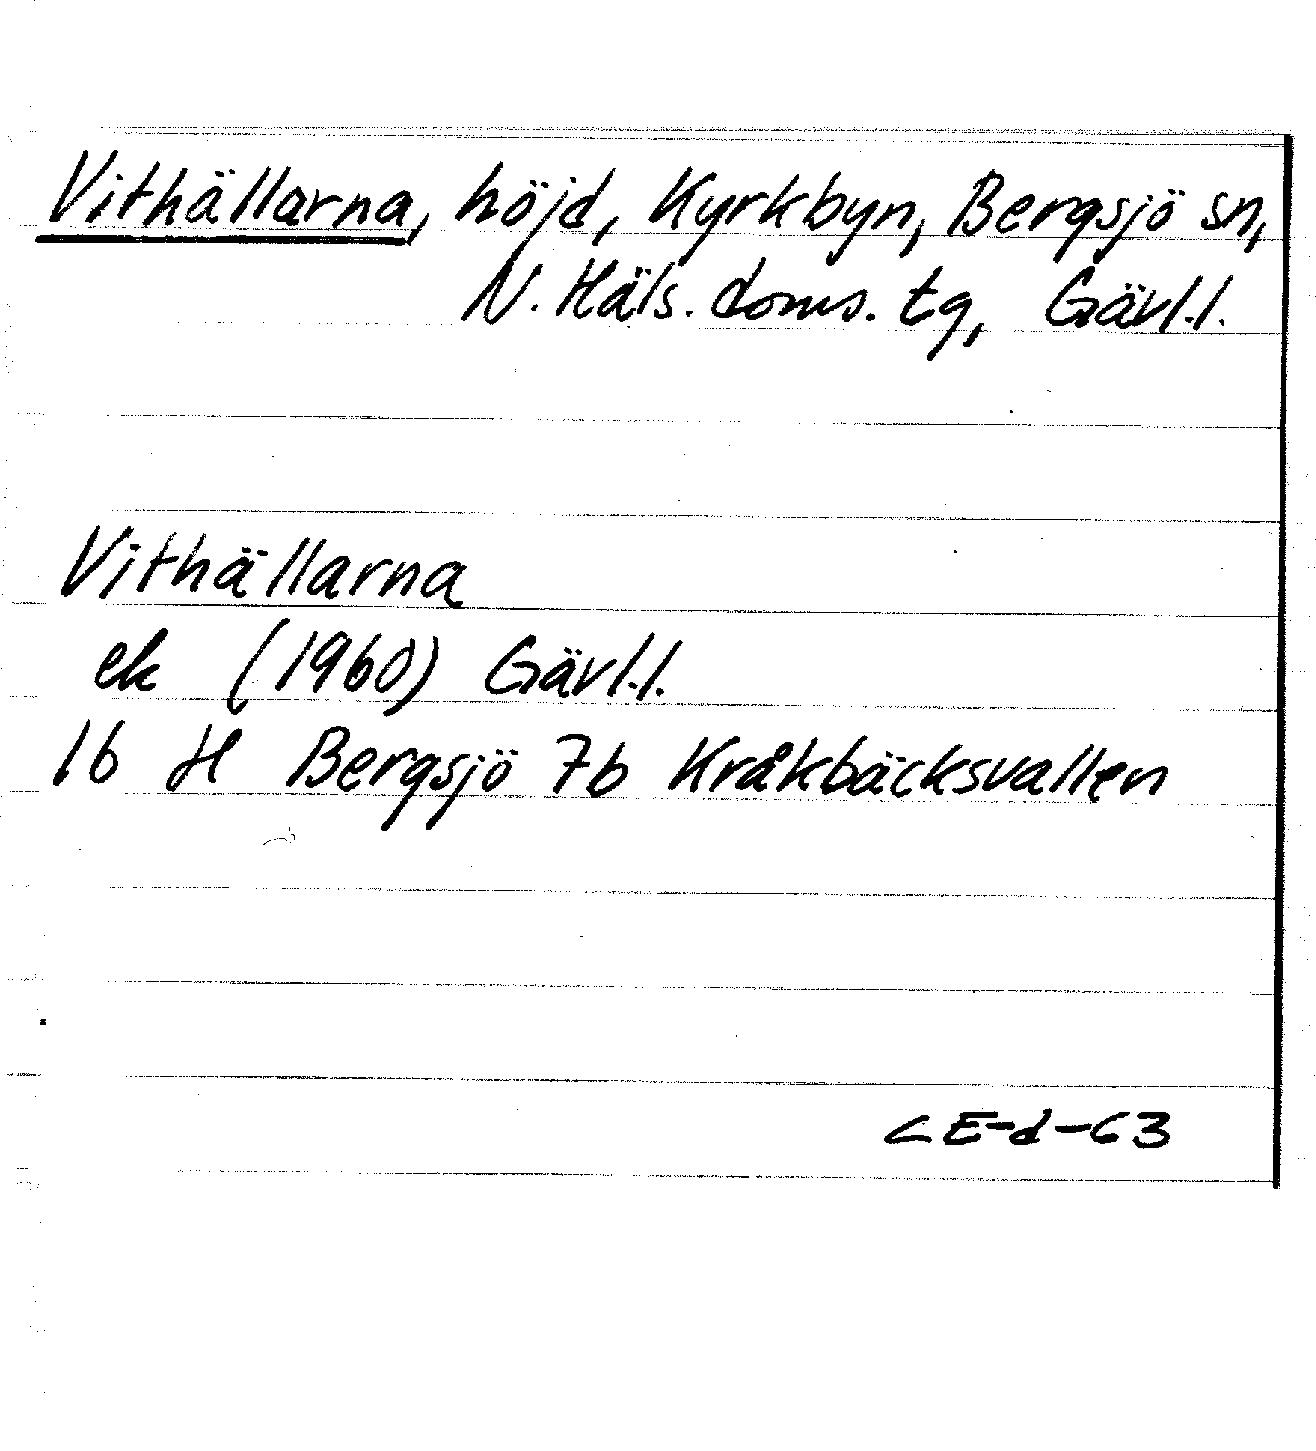 Vithällarna, höjd, Kyrkbyn, Bergsjö sn,
N. Häls. doms. tg, Gävl.l.
Vithällarna
ek (1960) Gävl.l.
16 H Bergsjö 7b Kråkbäcksvallen
CE-d-63